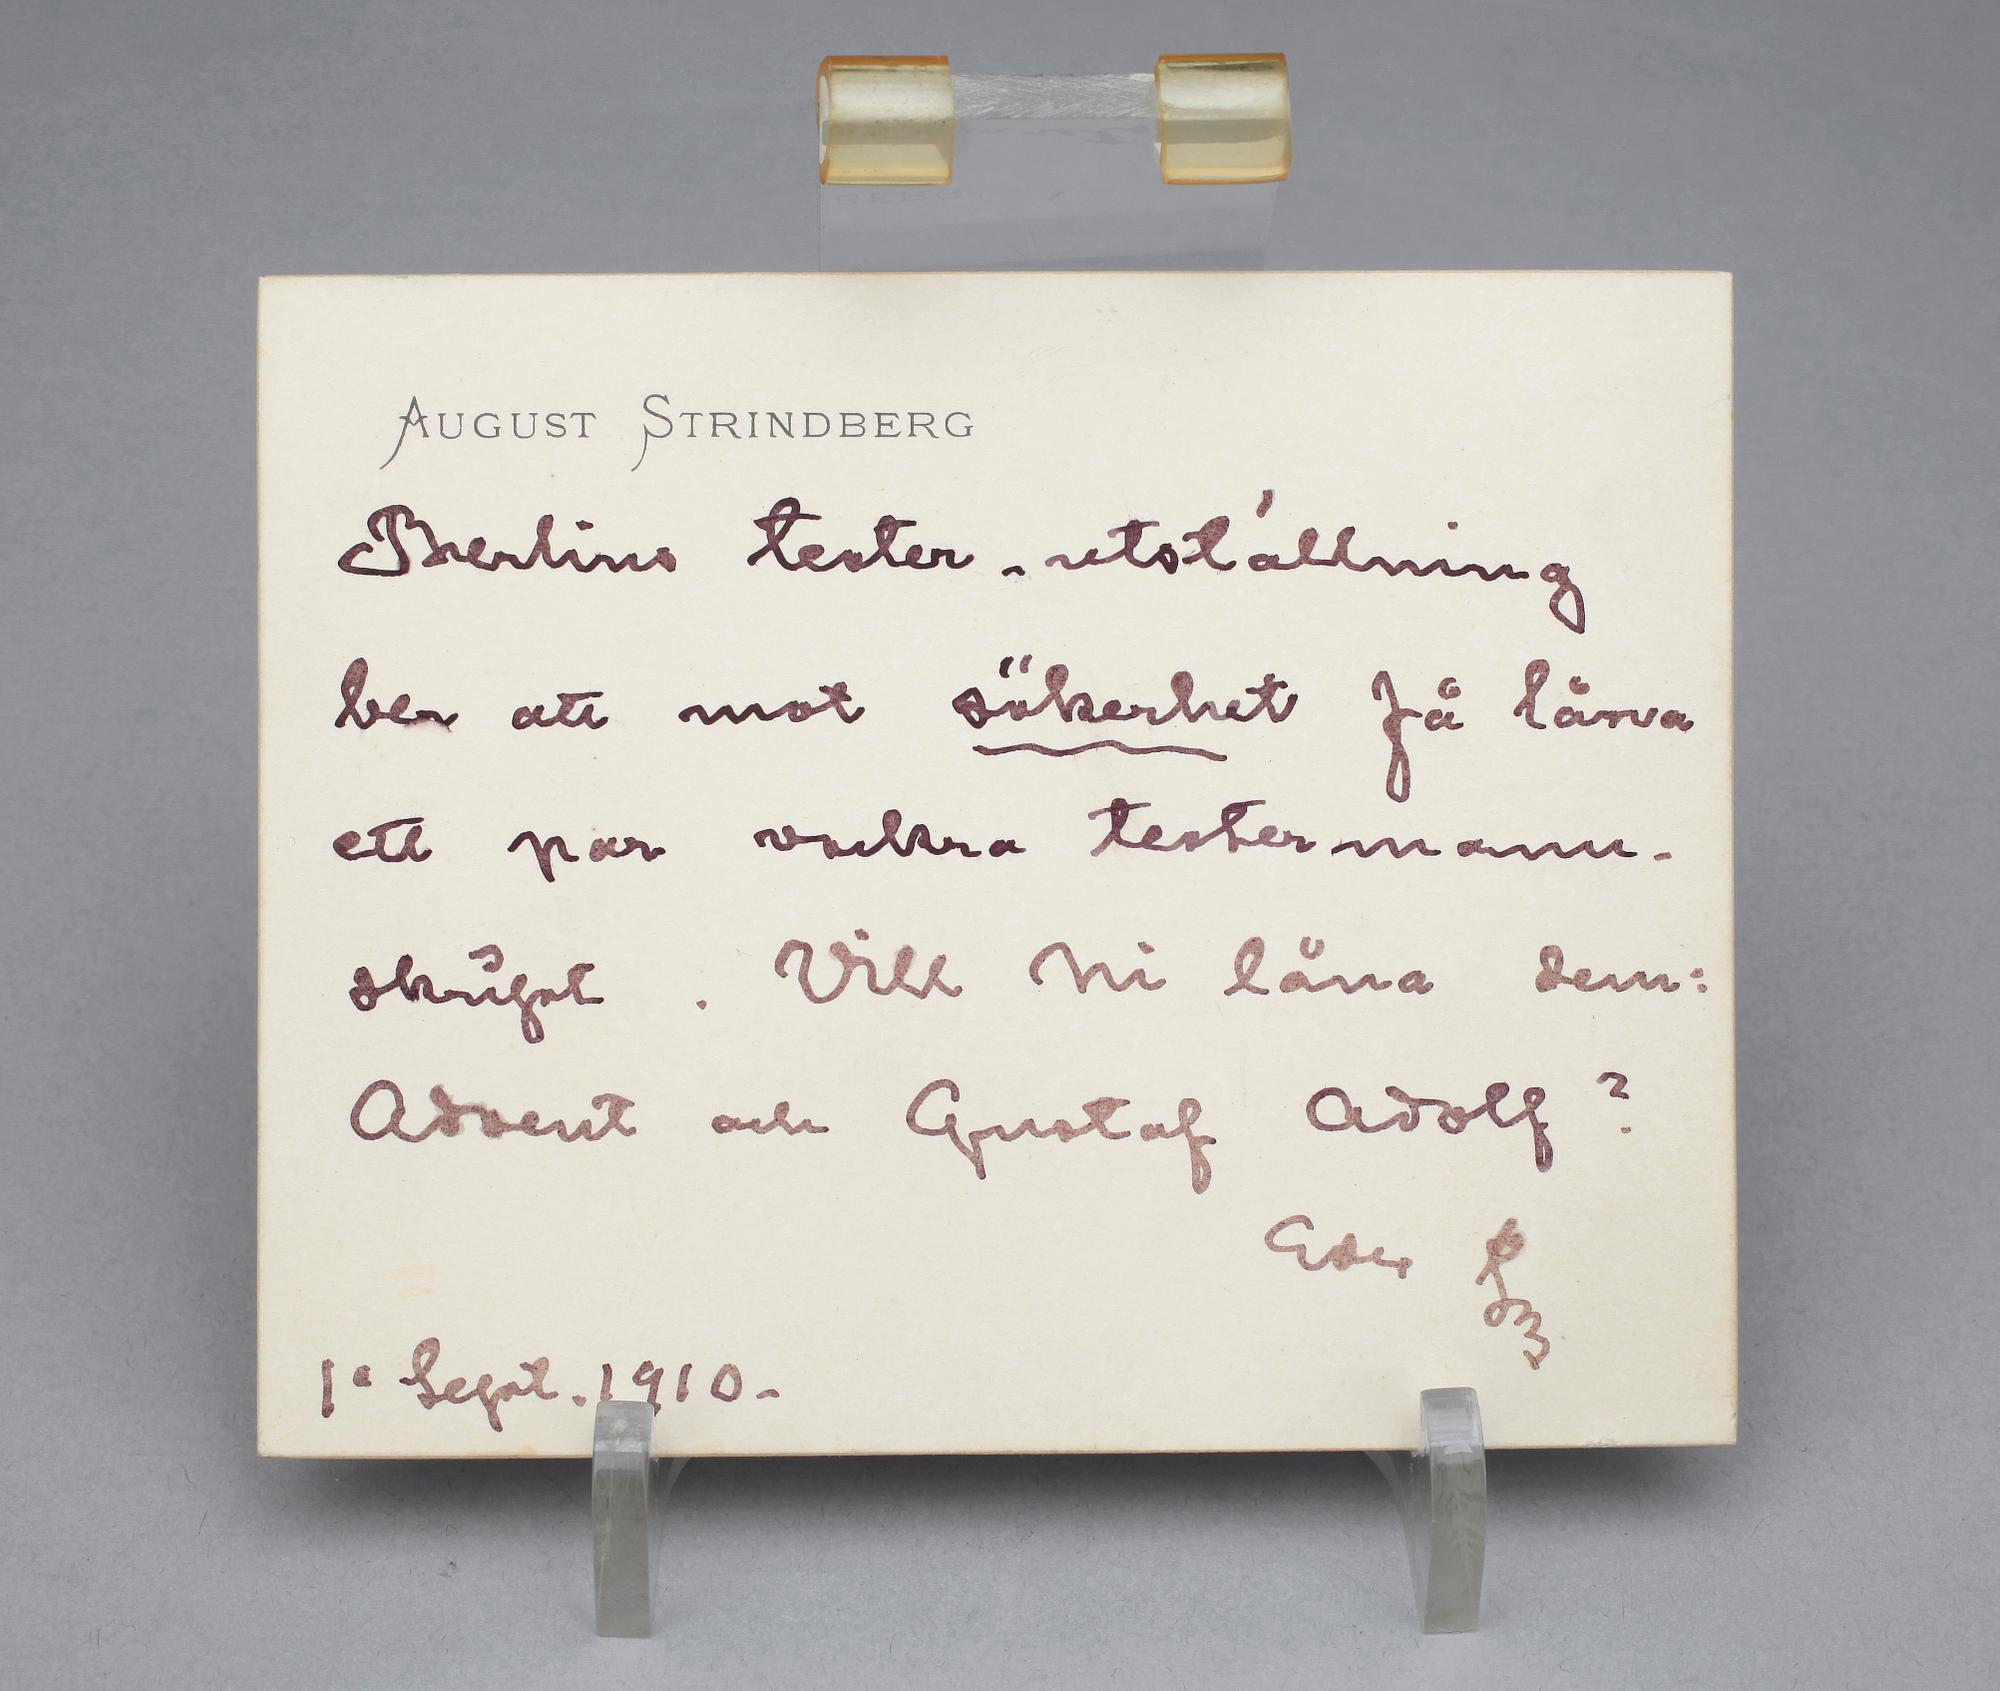 AUGUST STRINDBERG
Berlins teater-utställning
ber att mot säkerhet få låna
ett par vackra teatermanu-
skript. Vill Ni låna dem:
Advent och Gustaf Adolf?
Eder
1a Sept. 1910-